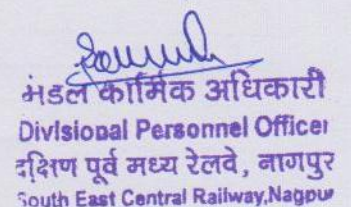 मंडल कार्मिक अधिकारी
Divisional Personnel Officer
दक्षिण पूर्व मध्य रेलवे, नागपुर
South East Central Railway,Nagpur